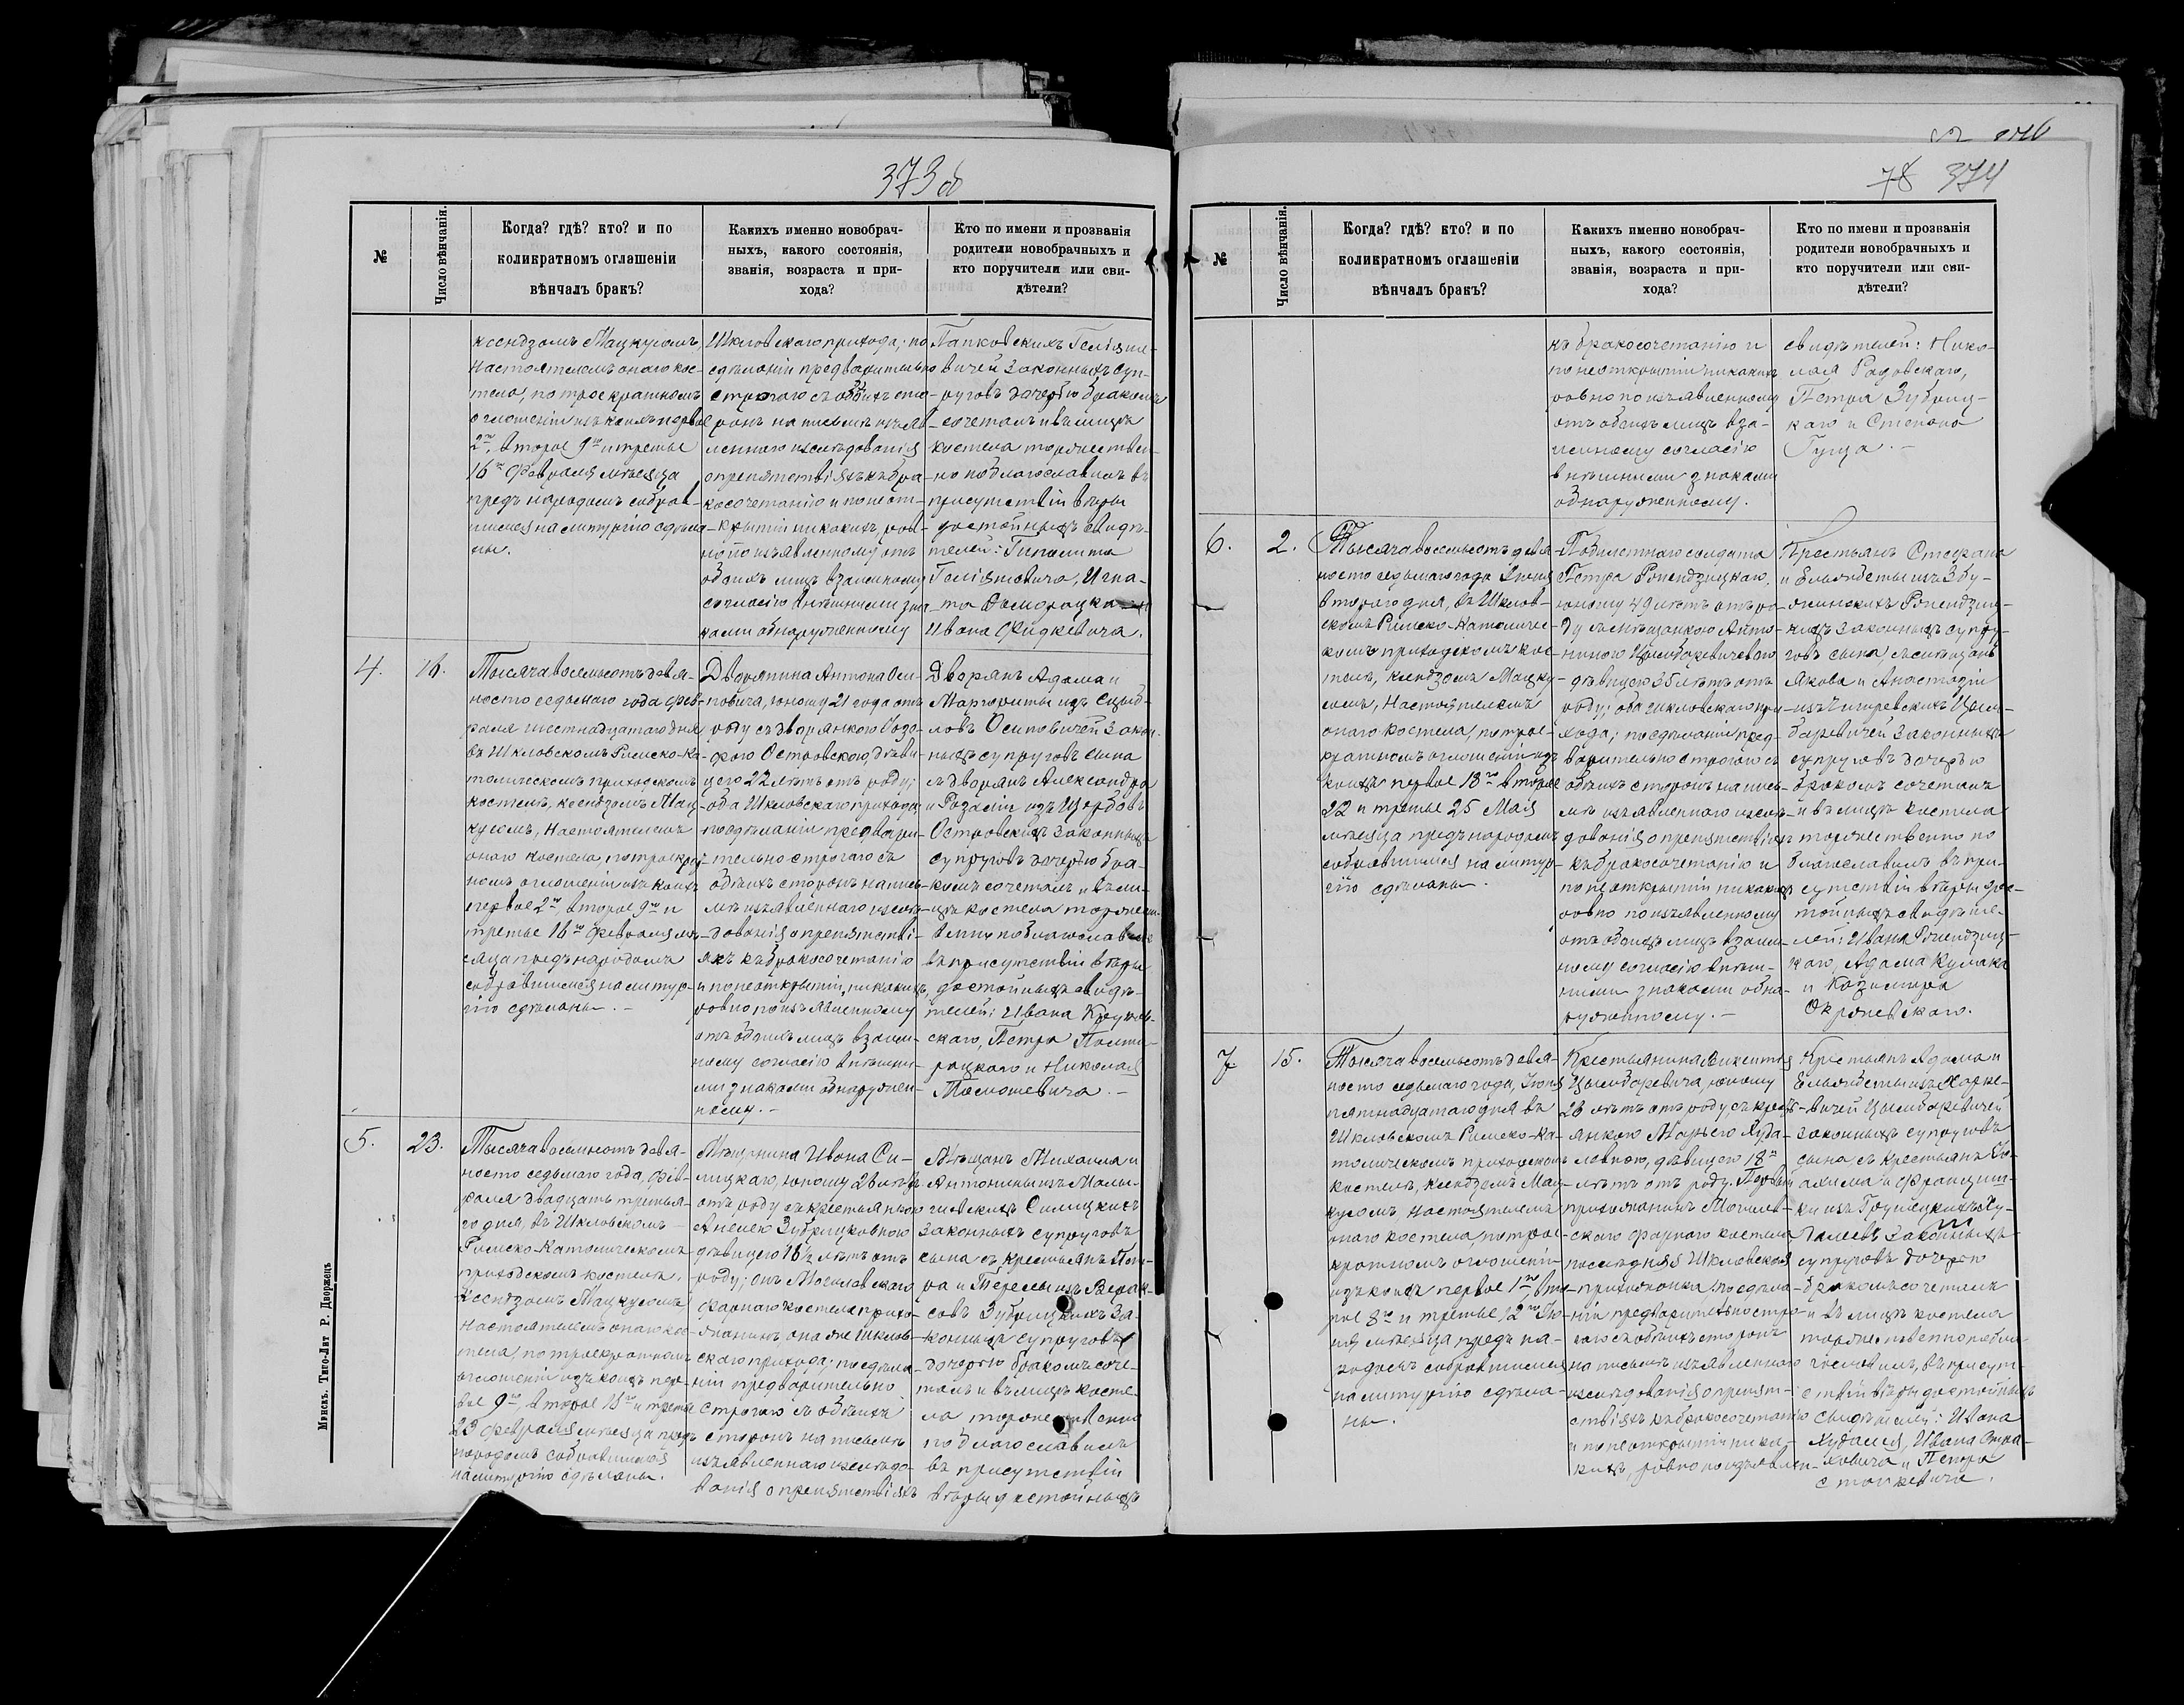 373 об
№
Число вѣнчанія.
Когда? гдѣ? кто? и по
коликратномъ оглашеніи
вѣнчалъ бракъ?
Какихъ именно новобрач-
ныхъ, какого состоянія,
званія, возраста и при-
хода?
Кто по имени и прозванія
родители новобрачныхъ и
кто поручители или сви-
дѣтели?
ксендзомъ Мацкусомъ,
Настоятелемъ онаго кос-
тела, по троекратномъ
оглашеніи изъ коихъ первое
2го, второе 9го и третье
16го Февраля мѣсяца
предъ народомъ собрав-
шимся на литургію сдѣла-
ны.
Шкловскаго прихода; по
сдѣланіи предварительно
строгаго съ обѣихъ сто-
ронъ на письмѣ изъяв-
леннаго изслѣдованія
о препятствіяхъ къ бра-
косочетанію и по неот-
крытіи никакихъ, рав-
но по изъявленному отъ
обоихъ лицъ взаимному
согласію внѣшними зна-
ками обнаруженному
законныхъ суп-
руговъ дочерью бракомъ
сочеталъ и въ лицѣ
костела торжествен-
но поблагославилъ въ
присутствіи вѣры
достойныхъ свидѣ-
телей: Гиполита
Игна-
та
Ивана Фидкевича.
4.
16.
Тысяча восемьсотъ девя-
носто седьмаго года Фев-
раля шестнадцатаго дня
въ Шкловскомъ Римско-Ка-
толическомъ приходскомъ
костелѣ, ксендзомъ Мац-
кусомъ, Настоятелемъ
онаго костела, по троекрат-
номъ оглашеніи изъ коихъ
первое 2го, второе 9го и
третье 16го Февраля мѣ-
сяца предъ народомъ
собравшимся на литур-
гію сдѣланы. —
Дворянина Антона Оси-
повича, юношу 21 года отъ
роду съ дворянкою Роза-
Островскою, дѣви-
цею 22 лѣтъ отъ роду;
оба Шкловскаго прихода;
по сдѣланіи предвари-
тельно строгаго съ
обѣихъ сторонъ на пись-
мѣ изъявленнаго изслѣ-
дованія о препятстві-
яхъ къ бракосочетанію
и по неоткрытіи никакихъ,
равно по изъявленному
отъ обоихъ лицъ взаим-
ному согласію внѣшни-
ми знаками обнаружен-
ному. —
Дворянъ Адама и
Маргариты изъ
Осиповичей закон-
ныхъ супруговъ сына
съ дворянъ Александра
и Розаліи изъ Щербовъ
Островскихъ законныхъ
супруговъ дочерью бра-
комъ сочеталъ и въ ли-
цѣ костела торжест-
венно поблагославилъ
въ присутствіи вѣры
достойныхъ свидѣ-
телей: Ивана
скаго, Петра
и Николая
5.
23.
Тысяча восемьсотъ девя-
носто седьмаго года, Фев-
раля двадцать третья-
го дня, въ Шкловскомъ
Римско-Католическомъ
приходскомъ костелѣ,
Ксендзомъ Мацкусомъ
Настоятелемъ онаго кос-
тела, по троекратномъ
оглашеніи изъ коихъ пер-
вое 9го, второе 15го и третье
23 Февраля мѣсяца предъ
народомъ собравшимся
на литургію сдѣланы.
Мѣщанина Ивана Си-
лицкаго, юношу 28 лѣтъ
отъ роду съ крестьянкою
Анелею Зубрицковною
дѣвицею 16½ лѣтъ отъ
роду; онъ Могилевскаго
фарнаго костела прихо-
жанинъ она же Шклов-
скаго прихода; по сдѣла-
ніи предварительно
строгаго съ обѣихъ
сторонъ на письмѣ
изъявленнаго изслѣдо-
ванія о препятствіяхъ
Мѣщанъ Михаила и
Антонины изъ
Силицкихъ
законныхъ супруговъ
сына съ крестьянъ Пет-
ра и Терезы изъ
Зубрицкихъ за-
конныхъ супруговъ
дочерью бракомъ соче-
талъ и въ лицѣ косте-
ла торжественно
поблагославилъ
въ присутствіи
вѣры достойныхъ
Минскъ. Типо-Лит Р. Дворжецъ
78 374
№
Число вѣнчанія.
Когда? гдѣ? кто? и по
коликратномъ оглашеніи
вѣнчалъ бракъ?
Какихъ именно новобрач-
ныхъ, какого состоянія,
званія, возраста и при-
хода?
Кто по имени и прозванія
родители новобрачныхъ и
кто поручители или сви-
дѣтели?
къ бракосочетанію и
по неоткрытіи никакихъ
равно по изъявленному
отъ обоихъ лицъ вза-
имному согласію
внѣшними знаками
обнаруженному.
свидѣтелей: Нико-
лая Радовскаго,
Петра Зубриц-
каго и Степана
6.
2.
Тысяча восемьсотъ девя-
носто седьмаго года Іюня
втораго дня, въ Шклов-
скомъ Римско-Католичес-
комъ приходскомъ кос-
телѣ, ксендзомъ Мацку-
сомъ, Настоятелемъ
онаго костела, по трое-
кратномъ оглашеніи изъ
коихъ первое 18го второе
22 и третье 25 Мая
мѣсяца предъ народомъ
собравшимся на литур-
гію сдѣланы.
солдата
Петра
юношу 49 лѣтъ отъ ро-
ду съ мѣщанкою Анто-
ниною Цимбаревичевою
дѣвицею 35 лѣтъ отъ
роду; оба Шкловскаго при-
хода; по сдѣланіи пред-
варительно строгаго съ
обѣихъ сторонъ на пись-
мѣ изъявленнаго изслѣ-
дованія о препятствіяхъ
къ бракосочетанію и
по неоткрытіи никакихъ
равно по изъявленному
отъ обоихъ лицъ взаим-
ному согласію внѣш-
ними знаками обна-
руженному. —
Крестьянъ Стефана
и Ельжбеты изъ
законныхъ супру-
говъ сына, съ мѣщанъ
Якова и Анастазіи
изъ Цим-
баревичей законныхъ
супруговъ дочерью
бракомъ сочеталъ
и въ лицѣ костела
торжественно по-
благославилъ въ при-
сутствіи вѣры дос-
тойныхъ свидѣте-
лей: Ивана
Адама Кулака
и Казимира
7
15.
Тысяча восемьсотъ девя-
носто седьмаго года, Іюня
пятнадцатаго дня въ
Шкловскомъ Римско-Ка-
толическомъ приходскомъ
костелѣ, ксендзомъ Мац-
кусомъ, Настоятелемъ
онаго костела по трое-
кратномъ оглашеніи
изъ коихъ первое 1го вто-
рое 8го и третье 12го Ію-
ня мѣсяца предъ на-
родомъ собравшимся
на литургію сдѣла-
ны.
Крестьянина Викентія
Цимбаревича, юношу
28 лѣтъ отъ роду, съ крест-
янкою Марьею Худа-
левною, дѣвицею 18
лѣтъ отъ роду. Первый
прихожанинъ Могилев-
скаго фарнаго костела
последняя Шкловская
прихожанка, по сдѣла-
ніи предварительно стро-
гаго съ обѣихъ сторонъ
на письмѣ изъявленнаго
изслѣдованія о препят-
ствіяхъ къ бракосочетанію
и по неоткрытіи ника-
кихъ, равно по изъявлен-
Крестьянъ Адама и
Ельжбеты изъ
Цимбаревичей
законныхъ супруговъ
сына, съ крестьянъ
и Францишки
изъ Ху-
далеевъ законныхъ
супруговъ дочерью
бракомъ сочеталъ
и въ лицѣ костела
торжественно побла-
гославилъ, въ присут-
ствіи вѣры достойныхъ
свидѣтелей: Ивана
Худалея, Ивана
и Петра